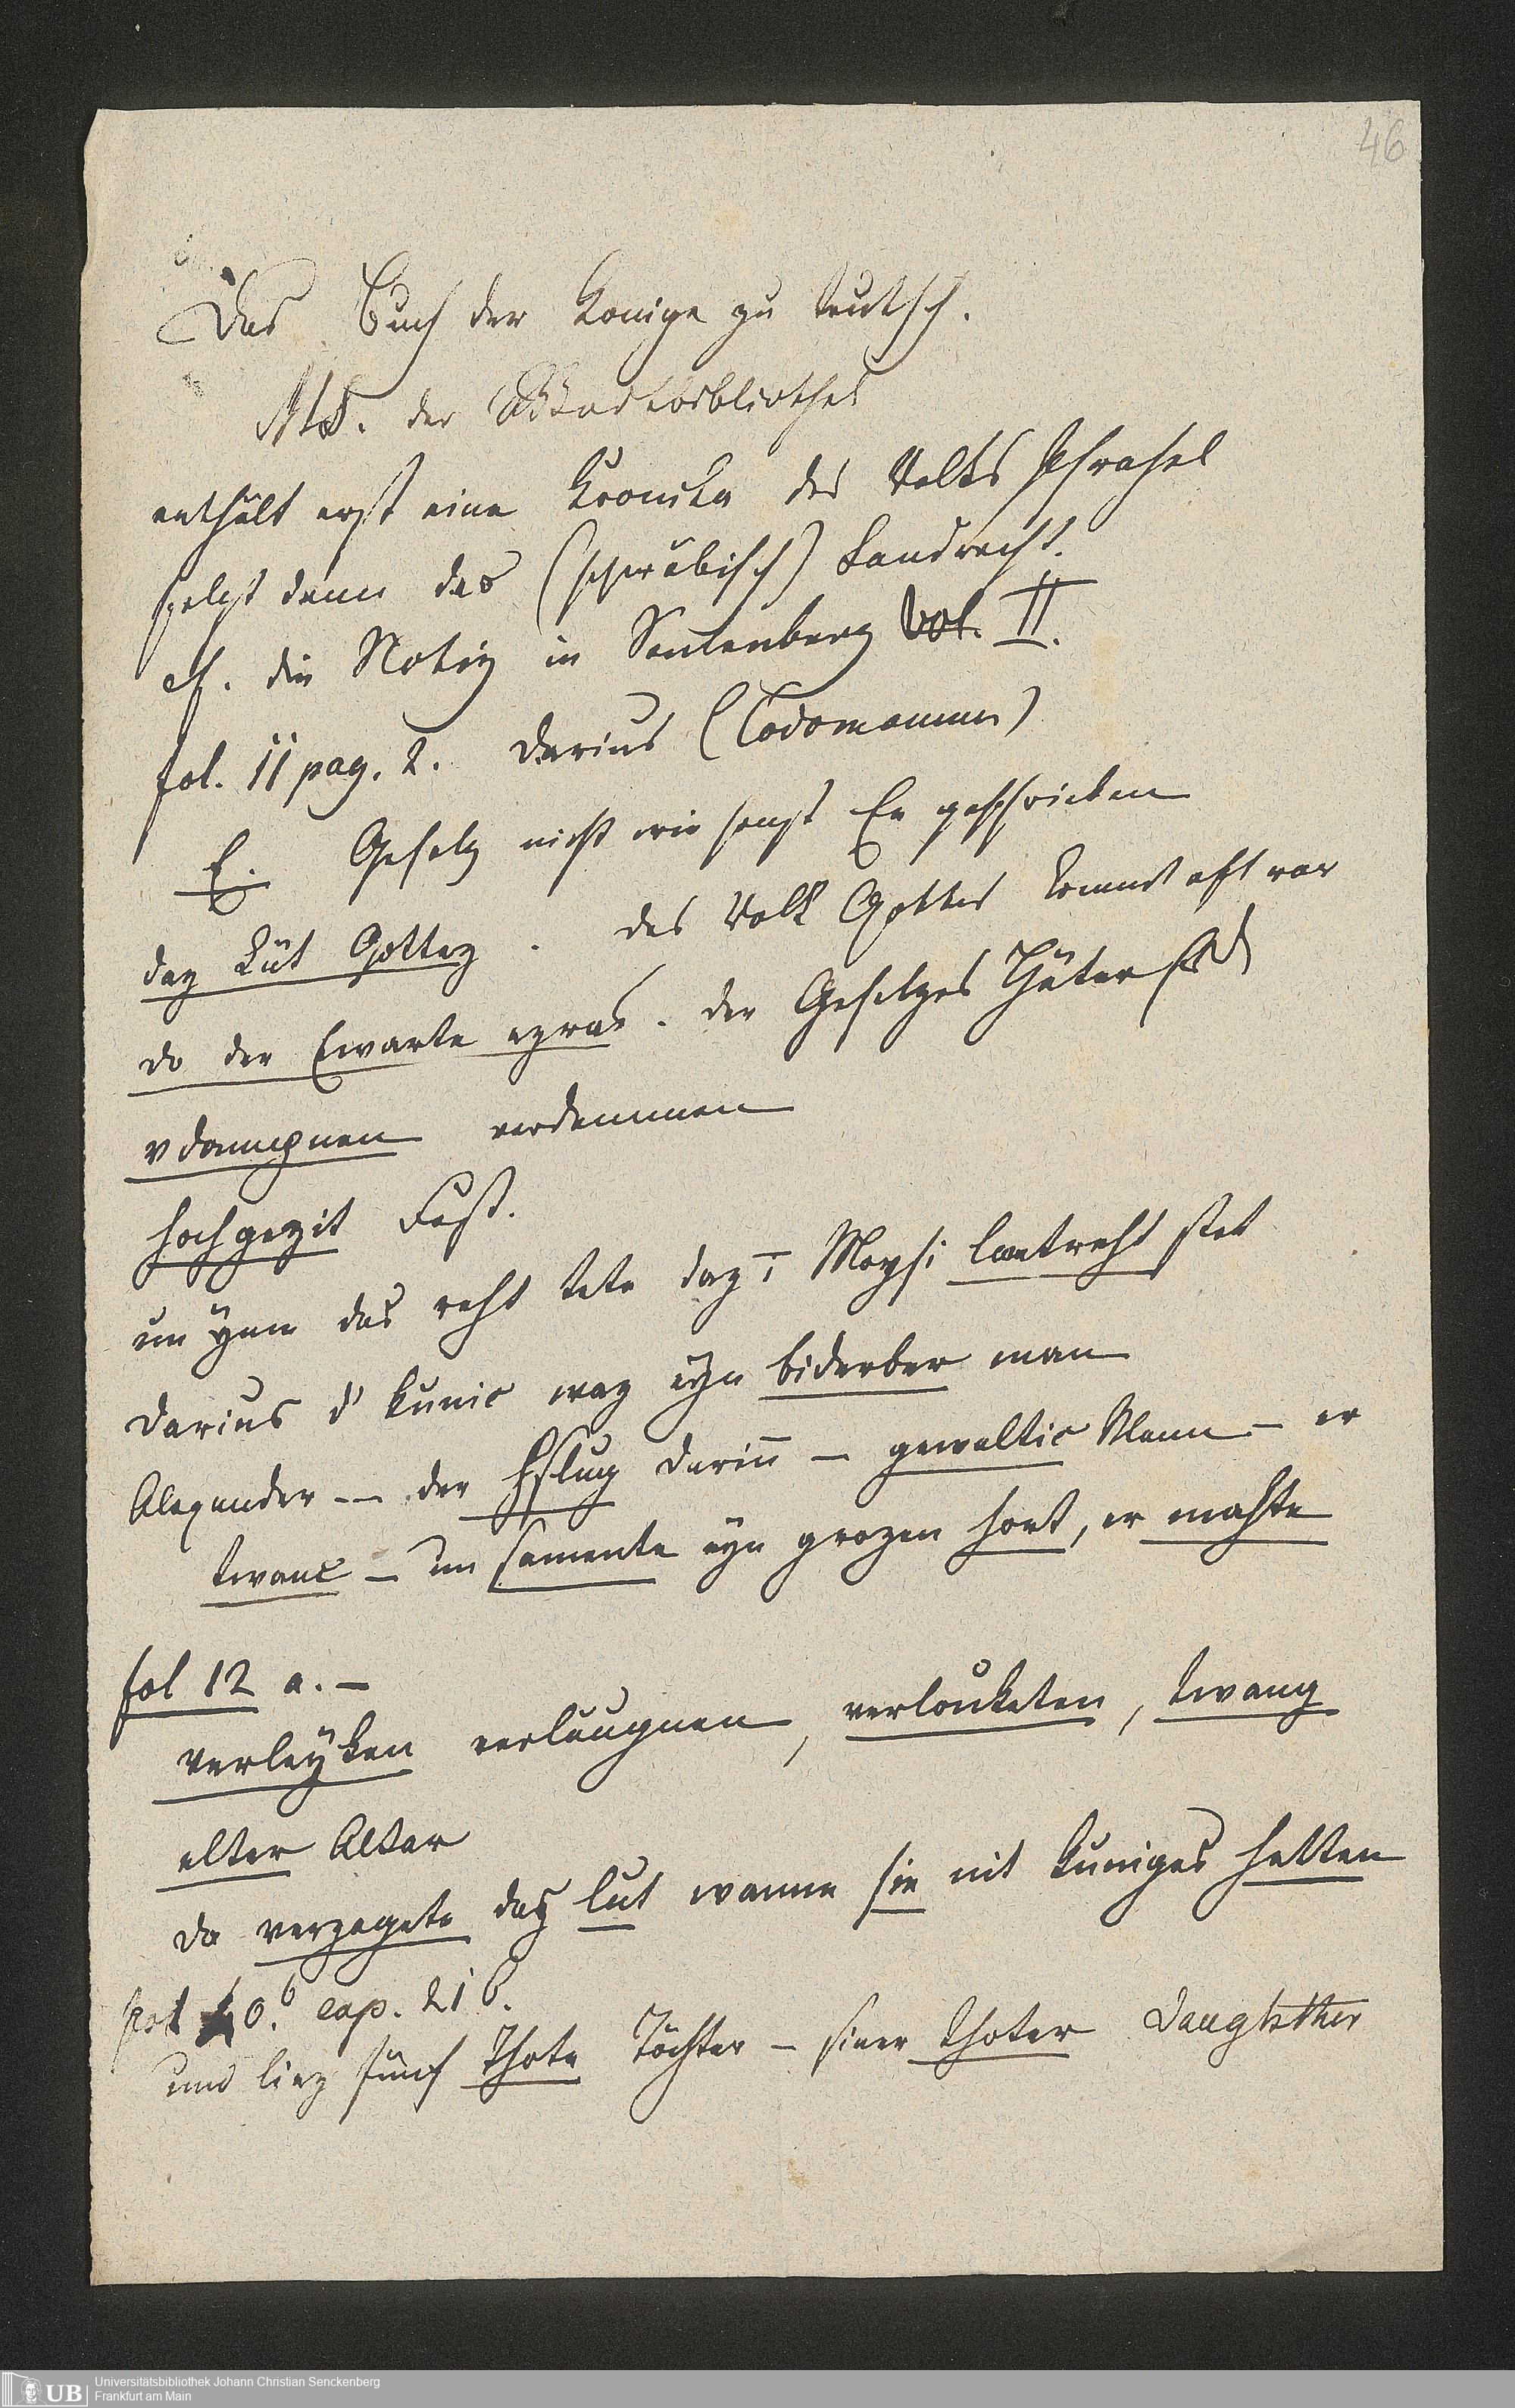 46
Das Buch der Konige zu teutsch.
MS. der Stadtbibliothek
enthält erst eine Kronika des Volks
folgt dann das (schwäbisch) Landrecht.
cf. die Notiz in Senkenberg Vol. II.
fol. 11 pag. 2. Darius (Codomannus)
E. Gesetz nicht wie sonst Ee geschrieben
daz Lüt Gottez. das Volk Gottes kommt oft vor
do der Ewarte ezras. der Gesetzes
verdammen
hochgezit Fest.
un das reht tete daz Moysi lantreht stet
Darius d' kunic waz eyn biderber man
Alexander — der — gewaltic Mann — er
twanc — un samente eyn grozen hort, er mahte
fol 12 a. —
verläugnen, verlouketen, twang
elter Altar
do verzagete daz lut wanne sie nit kuniges hetten
cap. 216.
und liez fünf Thote Töchter — siner thoter
UB
Universitätsbibliothek Johann Christian Senckenberg
Frankfurt am Main